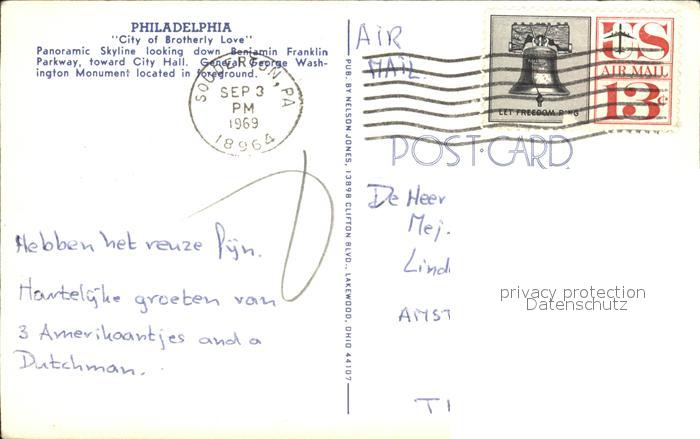 PHILADELPHIA
"City of Brotherly Love"
Panoramic Skyline looking down Benjamin Franklin
Parkway, toward City Hall. General George Wash-
ington Monument located in foreground.
SOUDERTON, PA
SEP 3
PM
1969
18964
AIR
MAIL
LET FREEDOM RING
US
AIR MAIL
13c
POST CARD
PUB. BY NELSON JONES, 13898 CLIFTON BLVD., LAKEWOOD, OHIO 44107
De Heer
Mej.
Lind
AMST
privacy protection
Datenschutz
Hebben het reuze fijn.
Hartelijke groeten van
3 Amerikaantjes and a
Dutchman.